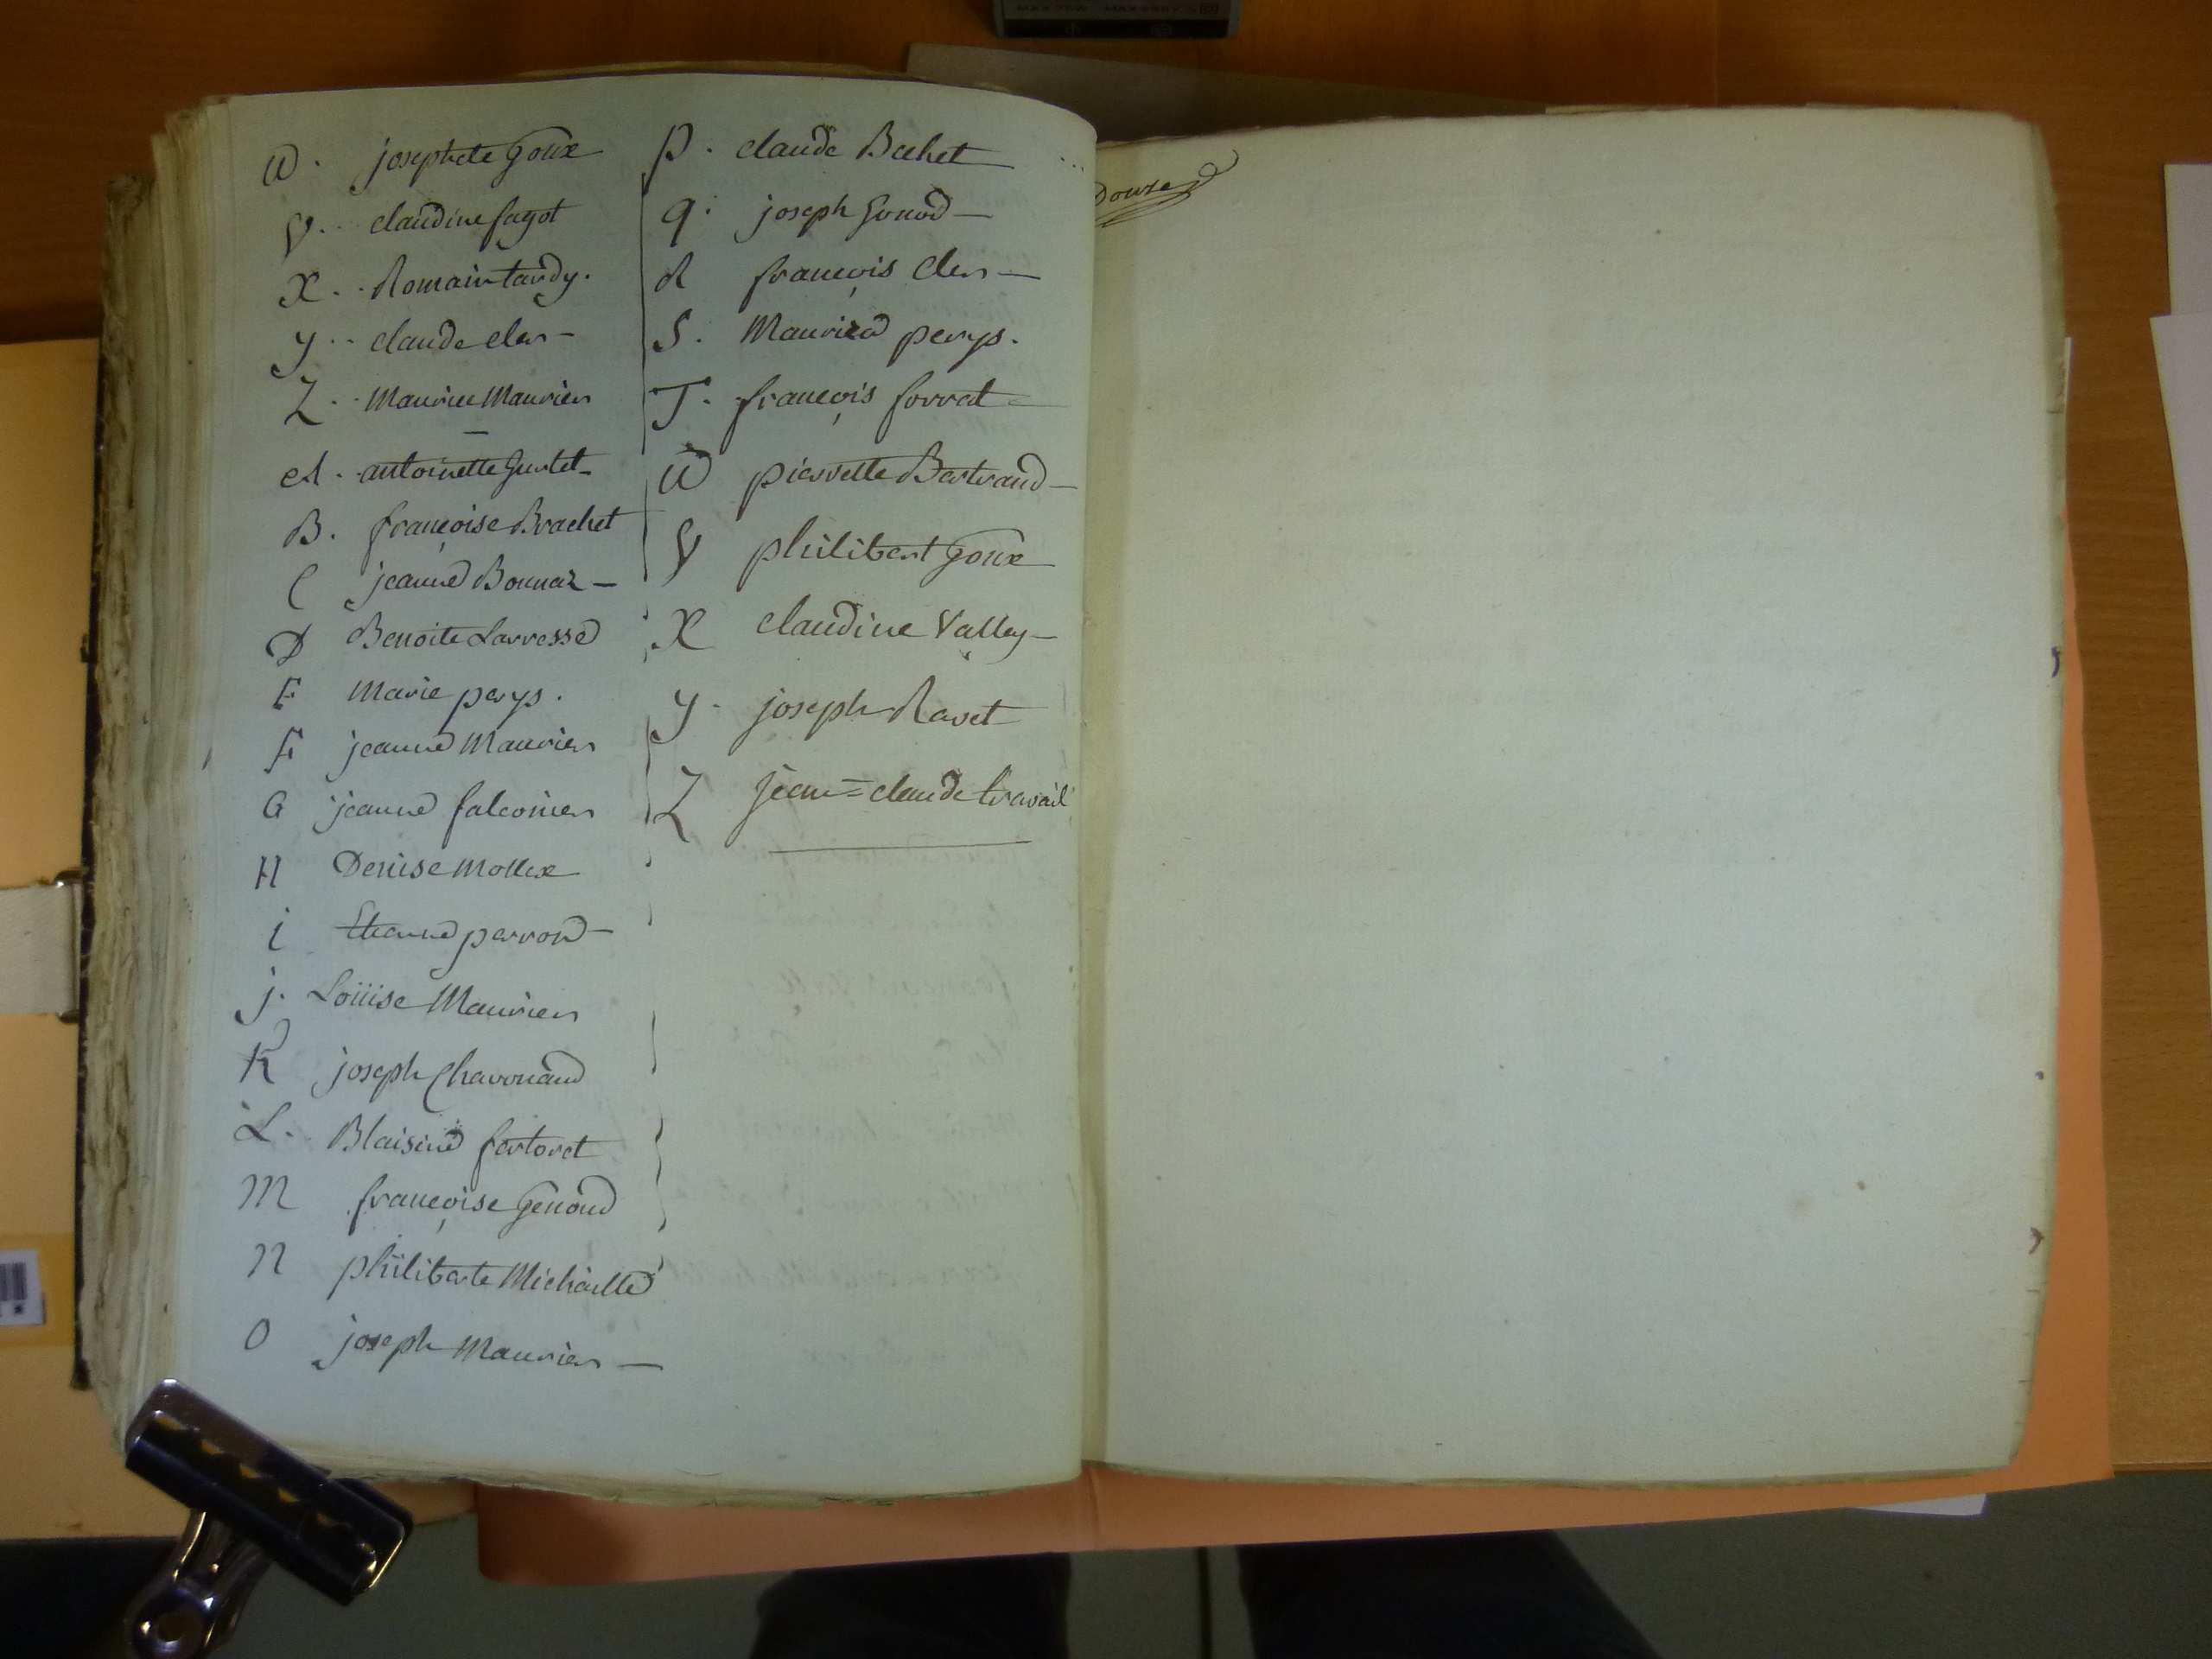 U. josephete goux
V. claudine fagot
X. Romain tardy.
y. claude cler
Z. Maurice Maurier
A. antoinette Gurtet
B. françoise Brachet
C jeanne Bonnaz
D Benoite Larresse
E Marie perys.
F jeanne Maurier
G jeanne falconier
H Denise Mollex
i Etienne perron
j. Loüise Maurier
K joseph Chavonand
L. Blaisine fertoret
M françoise genoud
N philiberte Michaille
O joseph Maurier
p. claude Bachet
q. joseph Gonod
R françois Cler
S. Maurice perys.
T. françois forrat
U pierrette Bertrand
V philibert goux
X claudine Valley
y. joseph Ravet
Z jean=claude travail